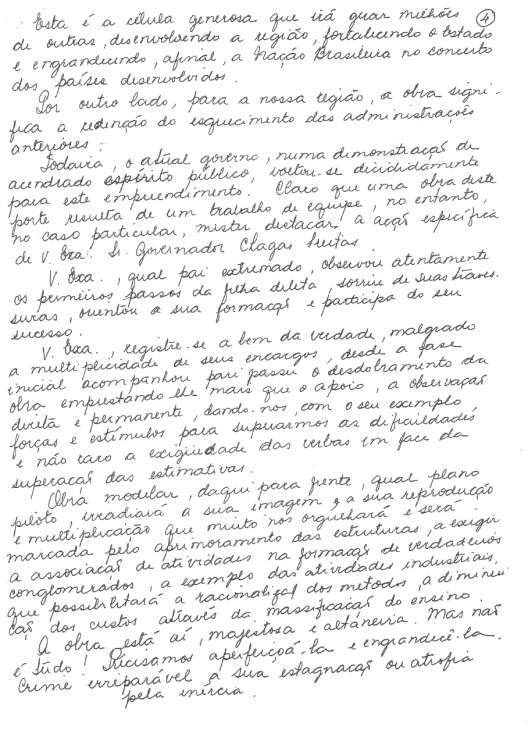 Esta é a célula generosa que irá gerar milhões ④
de outras, desenvolvendo a região, fortalecendo o Estado
e engrandecendo, afinal, a Nação Brasileira no concerto
dos países desenvolvidos.
Por outro lado, para a nossa região, a obra signi-
fica a redenção do esquecimento das administrações
anteriores.
Todavia, o atual governo, numa demonstração de
acendrado espírito público, voltou-se decididamente
para este empreendimento. Claro que uma obra deste
porte resulta de um trabalho de equipe, no entanto,
no caso particular, mister destacar a ação específica
de V. Exa. Sr. Governador Chagas Freitas.
V. Exa., qual pai extremado, observou atentamente
os primeiros passos da filha dileta, sorriu de suas traves-
suras, orientou a sua formação e participa do seu
sucesso.
V. Exa., registre-se a bem da verdade, malgrado
a multiplicidade de seus encargos, desde a fase
inicial acompanhou pari passu o desdobramento da
obra emprestando-lhe mais que o apoio, a observação
direta e permanente, dando-nos, com o seu exemplo
forças e estímulos para superarmos as dificuldades
e não raro a exigüidade das verbas em face da
superação das estimativas.
Obra modular, daqui para frente, qual plano
piloto, irradiará a sua imagem e a sua reprodução
e multiplicação que muito nos orgulhará e será
marcada pelo aprimoramento das estruturas, a exigir
a associação de atividades na formação de verdadeiros
conglomerados, a exemplo das atividades industriais,
que possibilitará a racionalização dos métodos, a diminui
ção dos custos através da massificação do ensino.
A obra está aí, majestosa e altaneira. Mas não
é tudo! Precisamos aperfeiçoá-la e engrandecê-la.
Crime irreparável a sua estagnação ou atrofia
pela inércia.